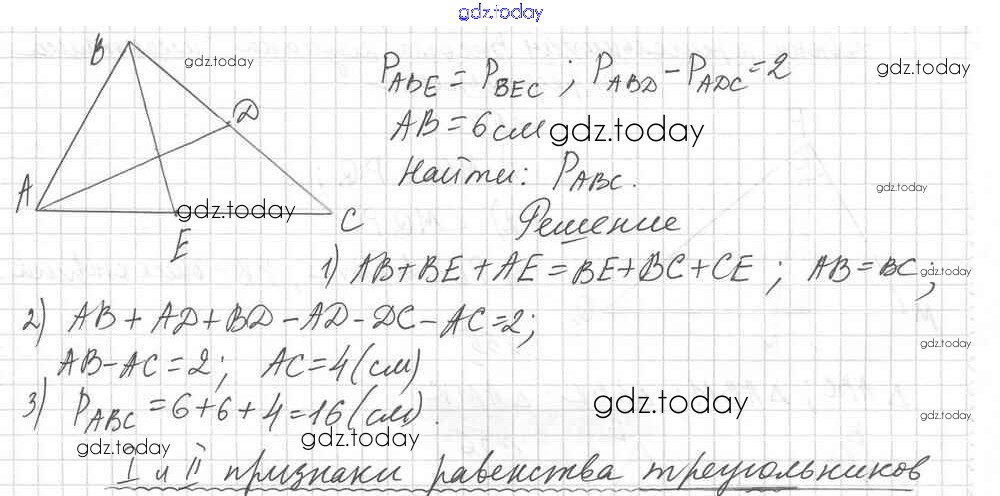 gdz.today
B
gdz.today
P_ABE = P_BEC ; P_ABD - P_ADC = 2
gdz.today
D
AB = 6 см
gdz.today
Найти: P_ABC.
gdz.today
A
gdz.today
C
E
Решение
1) AB + BE + AE = BE + BC + CE ; AB = BC ;
gdz.today
2) AB + AD + BD - AD - DC - AC = 2;
gdz.today
AB - AC = 2; AC = 4 (см)
3) P_ABC = 6 + 6 + 4 = 16 (см).
gdz.today
gdz.today
gdz.today
gdz.today
I и II признаки равенства треугольников